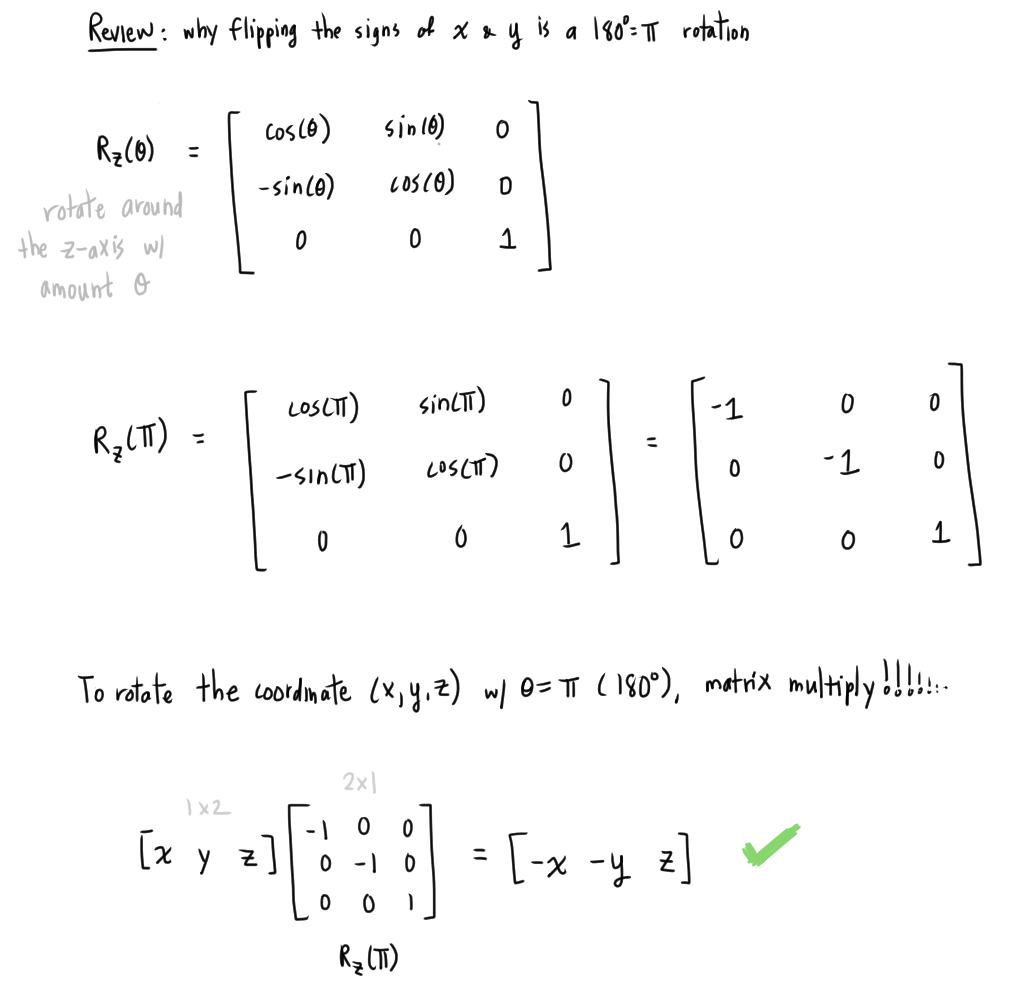 Review: why flipping the signs of x & y is a 180°=π rotation
cos(θ) sin(θ) 0
R_z(θ) = -sin(θ) cos(θ) 0
0 0 1
rotate around
the z-axis w/
amount θ
cos(π) sin(π) 0 -1 0 0
R_z(π) = -sin(π) cos(π) 0 = 0 -1 0
0 0 1 0 0 1
To rotate the coordinate (x,y,z) w/ θ=π (180°), matrix multiply!!!!!!...
1x2 2x1
-1 0 0
[x y z] 0 -1 0 = [-x -y z]
0 0 1
R_z(π)